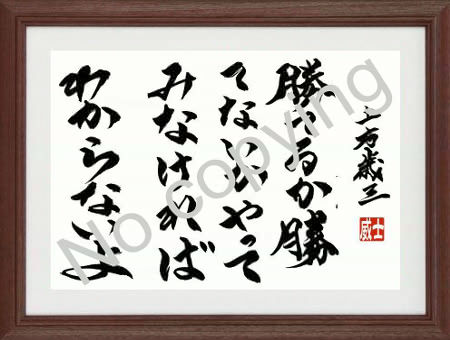 土方歳三
士威
勝てるか勝
てないかやって
みなければ
わからないよ
No copying